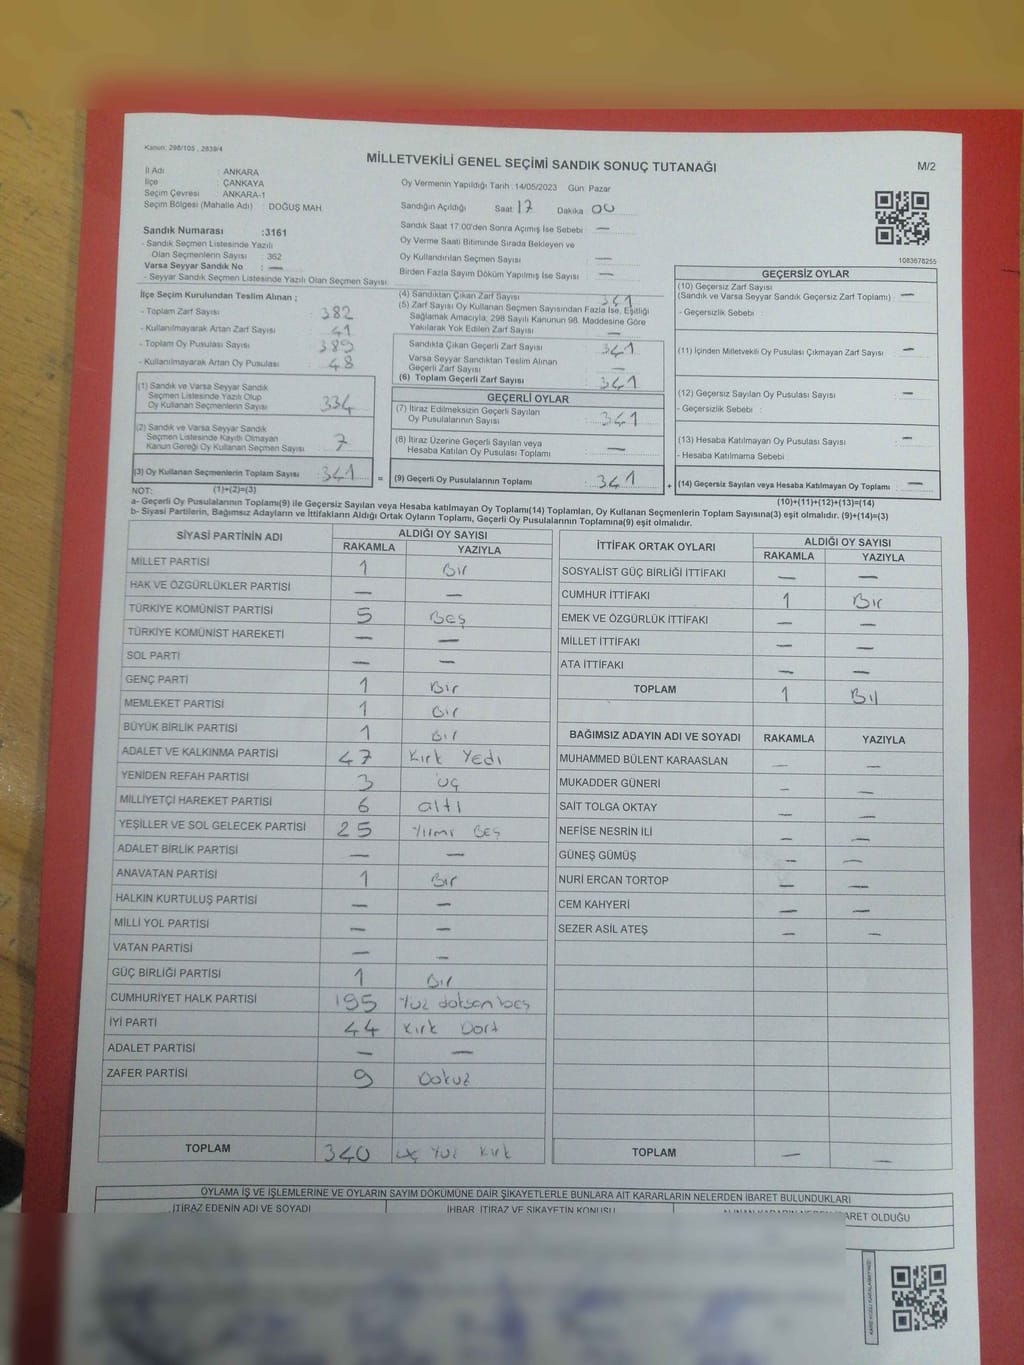 Kanun: 298/105 , 2839/4
MİLLETVEKİLİ GENEL SEÇİMİ SANDIK SONUÇ TUTANAĞI
M/2
İl Adı : ANKARA
İlçe : ÇANKAYA
Seçim Çevresi : ANKARA-1
Seçim Bölgesi (Mahalle Adı) : DOĞUŞ MAH.
Sandık Numarası :3161
- Sandık Seçmen Listesinde Yazılı
Olan Seçmenlerin Sayısı : 362
Varsa Seyyar Sandık No : —
- Seyyar Sandık Seçmen Listesinde Yazılı Olan Seçmen Sayısı
Oy Vermenin Yapıldığı Tarih :14/05/2023 Gün: Pazar
Sandığın Açıldığı Saat 17 Dakika 00
Sandık Saat 17.00'den Sonra Açımış İse Sebebi —
Oy Verme Saati Bitiminde Sırada Bekleyen ve
Oy Kullandırılan Seçmen Sayısı —
Birden Fazla Sayım Döküm Yapılmış İse Sayısı —
1083678255
İlçe Seçim Kurulundan Teslim Alınan ;
- Toplam Zarf Sayısı 382
- Kullanılmayarak Artan Zarf Sayısı 41
- Toplam Oy Pusulası Sayısı 389
- Kullanılmayarak Artan Oy Pusulası 48
(1) Sandık ve Varsa Seyyar Sandık
Seçmen Listesinde Yazılı Olup
Oy Kullanan Seçmenlerin Sayısı 334
(2) Sandık ve Varsa Seyyar Sandık
Seçmen Listesinde Kayıtlı Olmayan
Kanun Gereği Oy Kullanan Seçmen Sayısı 7
(3) Oy Kullanan Seçmenlerin Toplam Sayısı 341 =
(4) Sandıktan Çıkan Zarf Sayısı 341
(5) Zarf Sayısı Oy Kullanan Seçmen Sayısından Fazla İse, Eşitliği
Sağlamak Amacıyla; 298 Sayılı Kanunun 98. Maddesine Göre
Yakılarak Yok Edilen Zarf Sayısı —
Sandıkta Çıkan Geçerli Zarf Sayısı 341
Varsa Seyyar Sandıktan Teslim Alınan
Geçerli Zarf Sayısı —
(6) Toplam Geçerli Zarf Sayısı 341
GEÇERLİ OYLAR
(7) İtiraz Edilmeksizin Geçerli Sayılan
Oy Pusulalarının Sayısı 341
(8) İtiraz Üzerine Geçerli Sayılan veya
Hesaba Katılan Oy Pusulası Toplamı —
(9) Geçerli Oy Pusulalarının Toplamı 341 +
GEÇERSİZ OYLAR
(10) Geçersiz Zarf Sayısı
(Sandık ve Varsa Seyyar Sandık Geçersiz Zarf Toplamı) —
- Geçersizlik Sebebi :
(11) İçinden Milletvekili Oy Pusulası Çıkmayan Zarf Sayısı —
(12) Geçersiz Sayılan Oy Pusulası Sayısı —
- Geçersizlik Sebebi :
(13) Hesaba Katılmayan Oy Pusulası Sayısı —
- Hesaba Katılmama Sebebi
(14) Geçersiz Sayılan veya Hesaba Katılmayan Oy Toplamı —
NOT: (1)+(2)=(3) (10)+(11)+(12)+(13)=(14)
a- Geçerli Oy Pusulalarının Toplamı(9) ile Geçersiz Sayılan veya Hesaba katılmayan Oy Toplamı(14) Toplamları, Oy Kullanan Seçmenlerin Toplam Sayısına(3) eşit olmalıdır. (9)+(14)=(3)
b- Siyasi Partilerin, Bağımsız Adayların ve İttifakların Aldığı Oyların Toplamı, Geçerli Oy Pusulalarının Toplamına(9) eşit olmalıdır.
SİYASİ PARTİNİN ADI ALDIĞI OY SAYISI
RAKAMLA YAZIYLA
MİLLET PARTİSİ 1 Bir
HAK VE ÖZGÜRLÜKLER PARTİSİ — —
TÜRKİYE KOMÜNİST PARTİSİ 5 Beş
TÜRKİYE KOMÜNİST HAREKETİ — —
SOL PARTİ — —
GENÇ PARTİ 1 Bir
MEMLEKET PARTİSİ 1 Bir
BÜYÜK BİRLİK PARTİSİ 1 Bir
ADALET VE KALKINMA PARTİSİ 47 Kırk Yedi
YENİDEN REFAH PARTİSİ 3 üç
MİLLİYETÇİ HAREKET PARTİSİ 6 altı
YEŞİLLER VE SOL GELECEK PARTİSİ 25 Yirmi Beş
ADALET BİRLİK PARTİSİ — —
ANAVATAN PARTİSİ 1 Bir
HALKIN KURTULUŞ PARTİSİ — —
MİLLİ YOL PARTİSİ — —
VATAN PARTİSİ — —
GÜÇ BİRLİĞİ PARTİSİ 1 Bir
CUMHURİYET HALK PARTİSİ 195 Yüz doksan beş
İYİ PARTİ 44 Kırk Dört
ADALET PARTİSİ — —
ZAFER PARTİSİ 9 Dokuz
TOPLAM 340 üç Yüz Kırk
İTTİFAK ORTAK OYLARI ALDIĞI OY SAYISI
RAKAMLA YAZIYLA
SOSYALİST GÜÇ BİRLİĞİ İTTİFAKI — —
CUMHUR İTTİFAKI 1 Bir
EMEK VE ÖZGÜRLÜK İTTİFAKI — —
MİLLET İTTİFAKI — —
ATA İTTİFAKI — —
TOPLAM 1 Bir
BAĞIMSIZ ADAYIN ADI VE SOYADI RAKAMLA YAZIYLA
MUHAMMED BÜLENT KARAASLAN — —
MUKADDER GÜNERİ — —
SAİT TOLGA OKTAY — —
NEFİSE NESRİN İLİ — —
GÜNEŞ GÜMÜŞ — —
NURİ ERCAN TORTOP — —
CEM KAHYERİ — —
SEZER ASİL ATEŞ — —
TOPLAM — —
OYLAMA İŞ VE İŞLEMLERİNE VE OYLARIN SAYIM DÖKÜMÜNE DAİR ŞİKAYETLERLE BUNLARA AİT KARARLARIN NELERDEN İBARET BULUNDUKLARI
İTİRAZ EDENİN ADI VE SOYADI İHBAR, İTİRAZ VE ŞİKAYETİN KONUSU